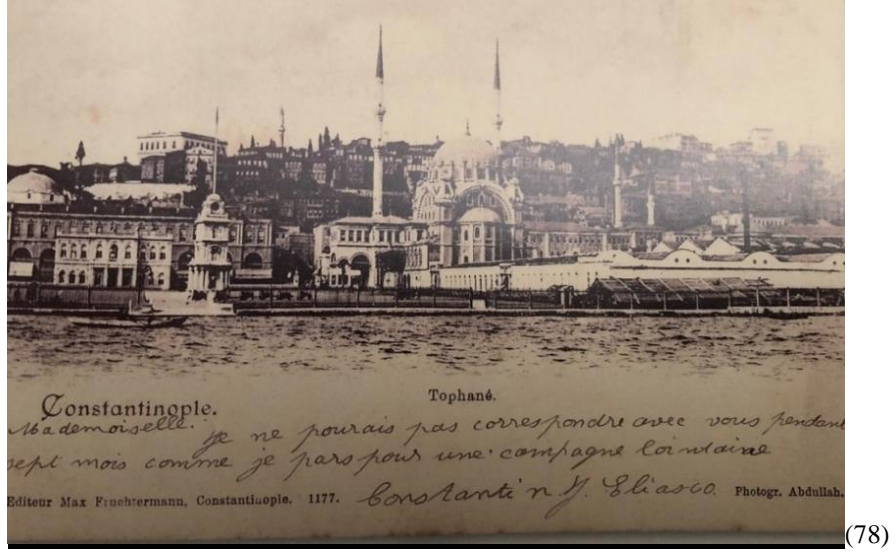 Constantinople.
Tophané.
Mademoiselle. je ne pourais pas correspondre avec vous pendant
sept mois comme je pars pour une campagne lointaine
Editeur Max Fruchtermann, Constantinople. 1177.
Constantin Y. Eliasco.
Photogr. Abdullah.
(78)